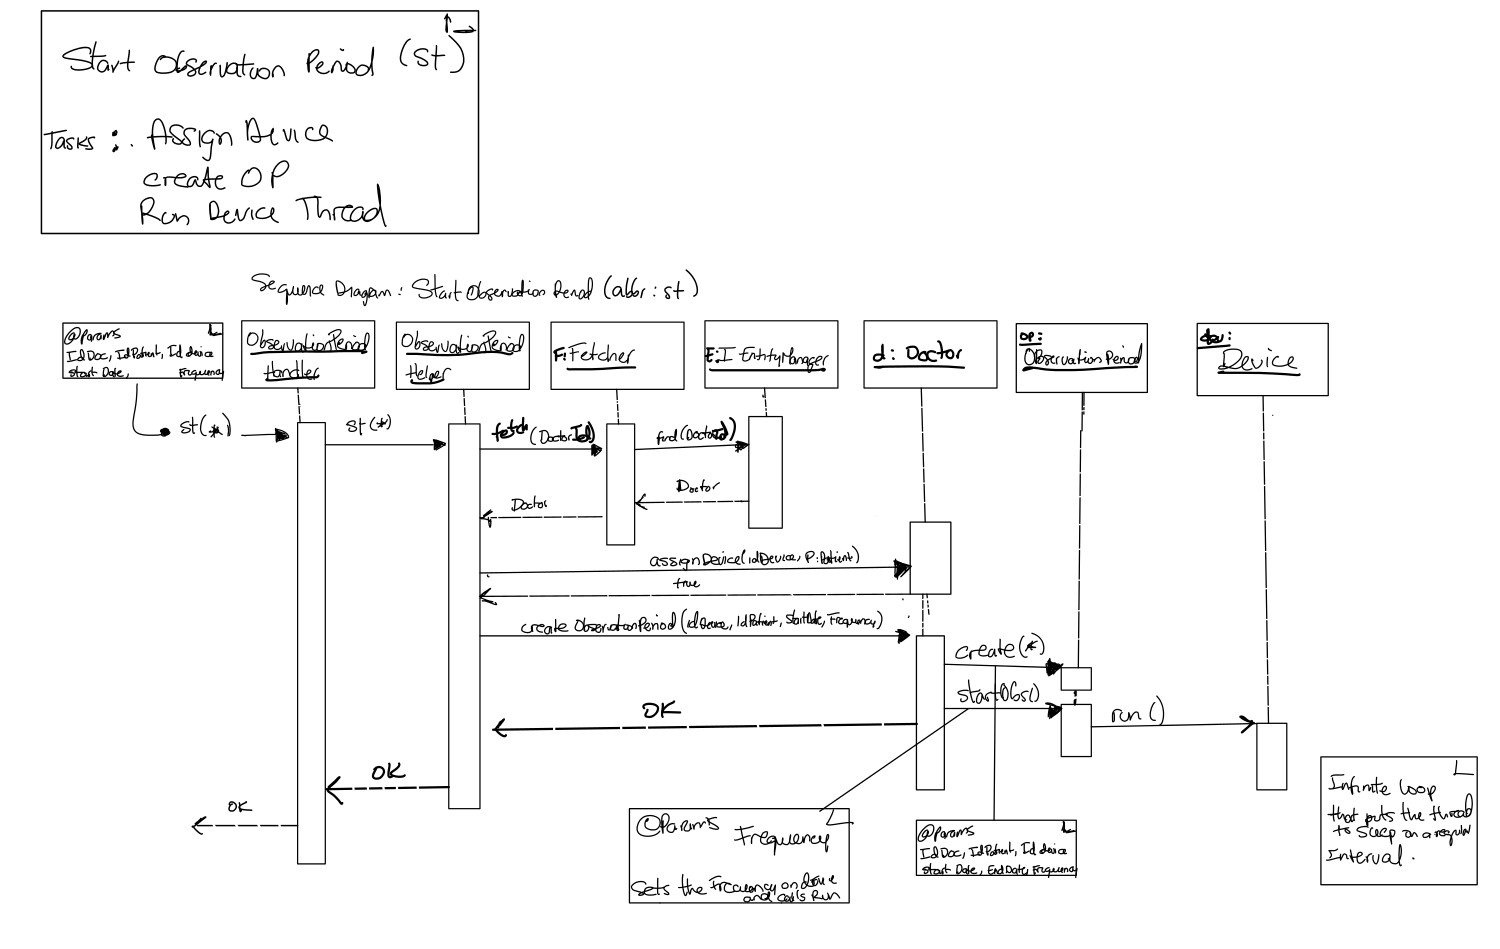 Start Observation Period (st)
Tasks : . Assign Device
create OP
Run Device Thread
Sequence Diagram : Start Observation Period (abbr : st)
@Params
IdDoc, IdPatient, Id device
start Date, Frequency
ObservationPeriod
Handler
ObservationPeriod
Helper
F:Fetcher
E:I EntityManager
d : Doctor
op:
Observation Period
Device
st(*)
st(*)
fetch (DoctorId)
find(DoctorId)
Doctor
Doctor
assignDevice(idDevice, P:Patient)
true
create ObservationPeriod (idDevice, IdPatient, StartDate, Frequency)
create(*)
startObs()
run ()
OK
OK
OK
@Params Frequency
Sets the Frequency on device
and calls Run
@Params
IdDoc, IdPatient, Id device
start Date, EndDate, Frequency
Infinite loop
that puts the thread
to sleep on a regular
Interval.